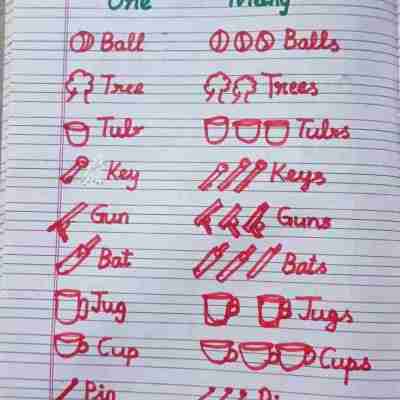 One Many
Ball Balls
Tree Trees
Tub Tubs
Key Keys
Gun Guns
Bat Bats
Jug Jugs
Cup Cups
Pin